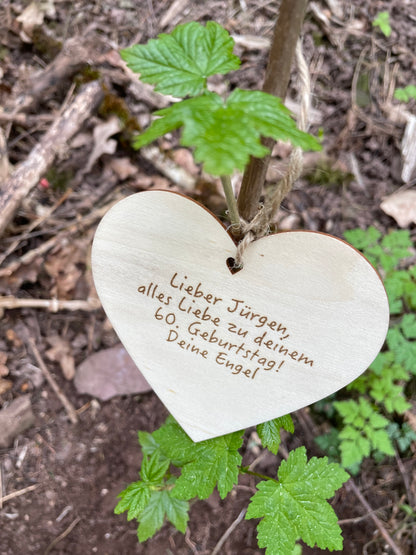 Lieber Jürgen,
alles Liebe zu deinem
60. Geburtstag!
Deine Engel